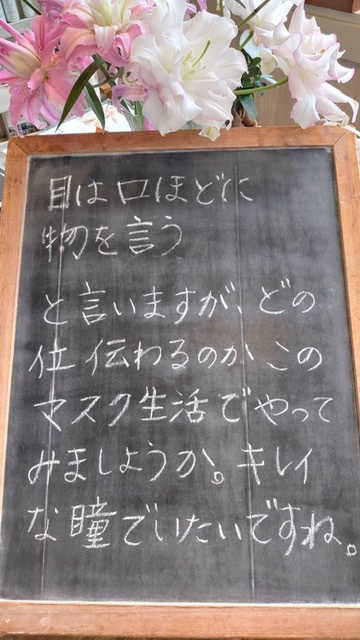 目は口ほどに
物を言う
と言いますが、どの
位伝わるのか この
マスク生活でやって
みましょうか。キレイ
な瞳でいたいですね。